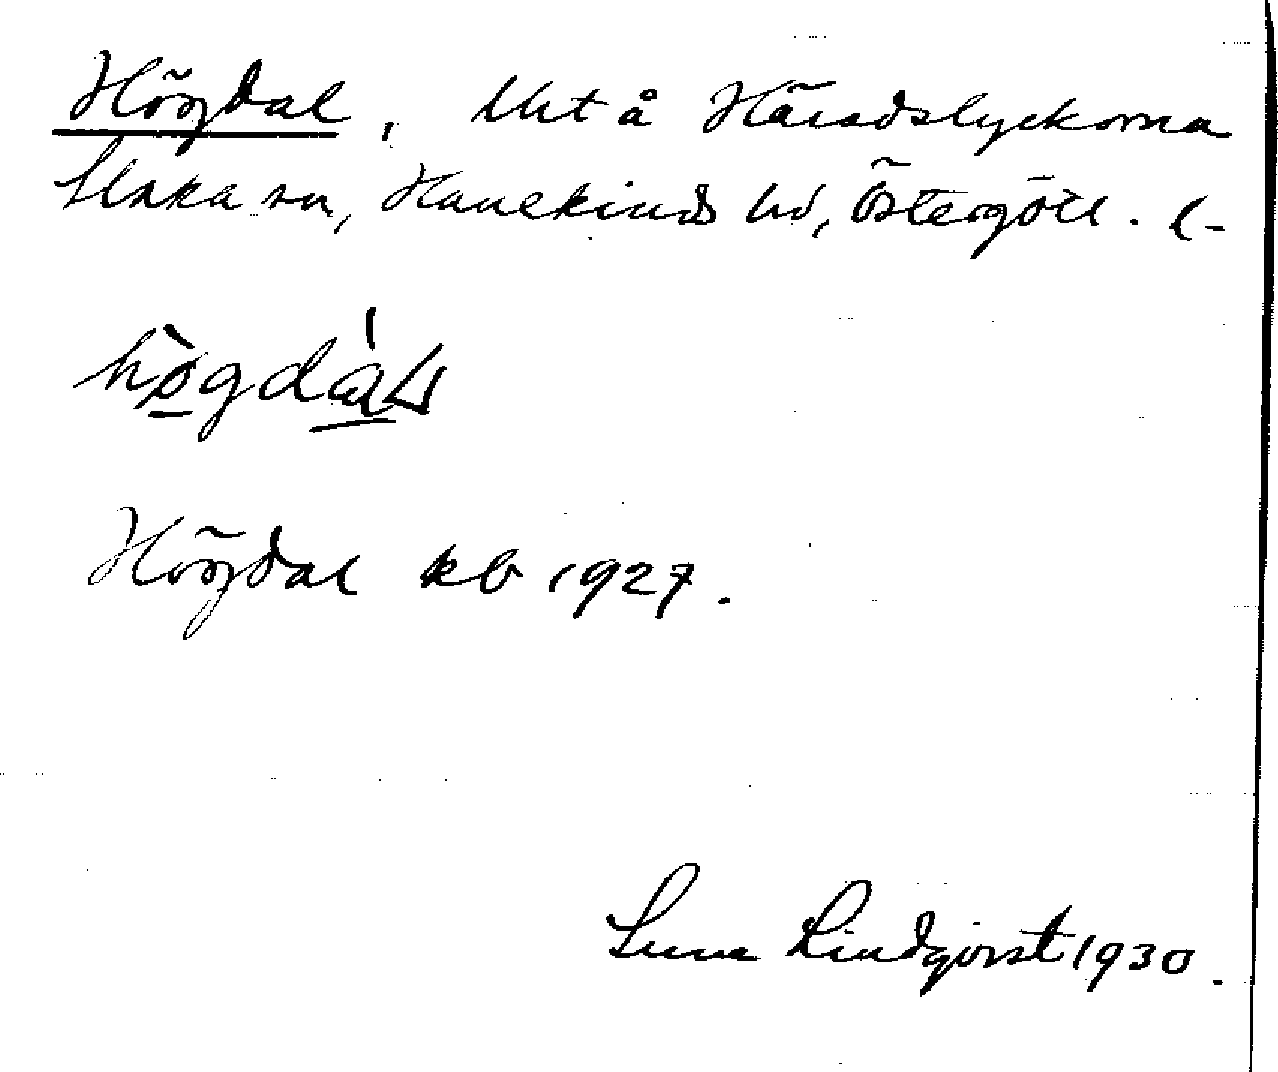 Högdal, lht å Häradslyckorna
Slaka sn, Hanekinds hd, Östergötl. l-
hògdàl
Högdal kb 1927.
Sune Lindqvist 1930.